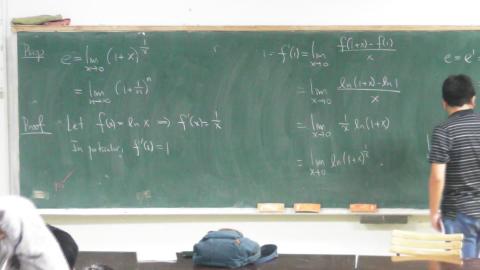 Prop: e = lim x→0 (1+x)^(1/x)
= lim n→∞ (1+1/n)^n
Proof: Let f(x) = ln x ⟹ f'(x) = 1/x
In particular, f'(1) = 1
1 = f'(1) = lim x→0 (f(1+x) - f(1))/x
= lim x→0 (ln(1+x) - ln 1)/x
= lim x→0 1/x ln(1+x)
= lim x→0 ln(1+x)^(1/x).
e = e^1